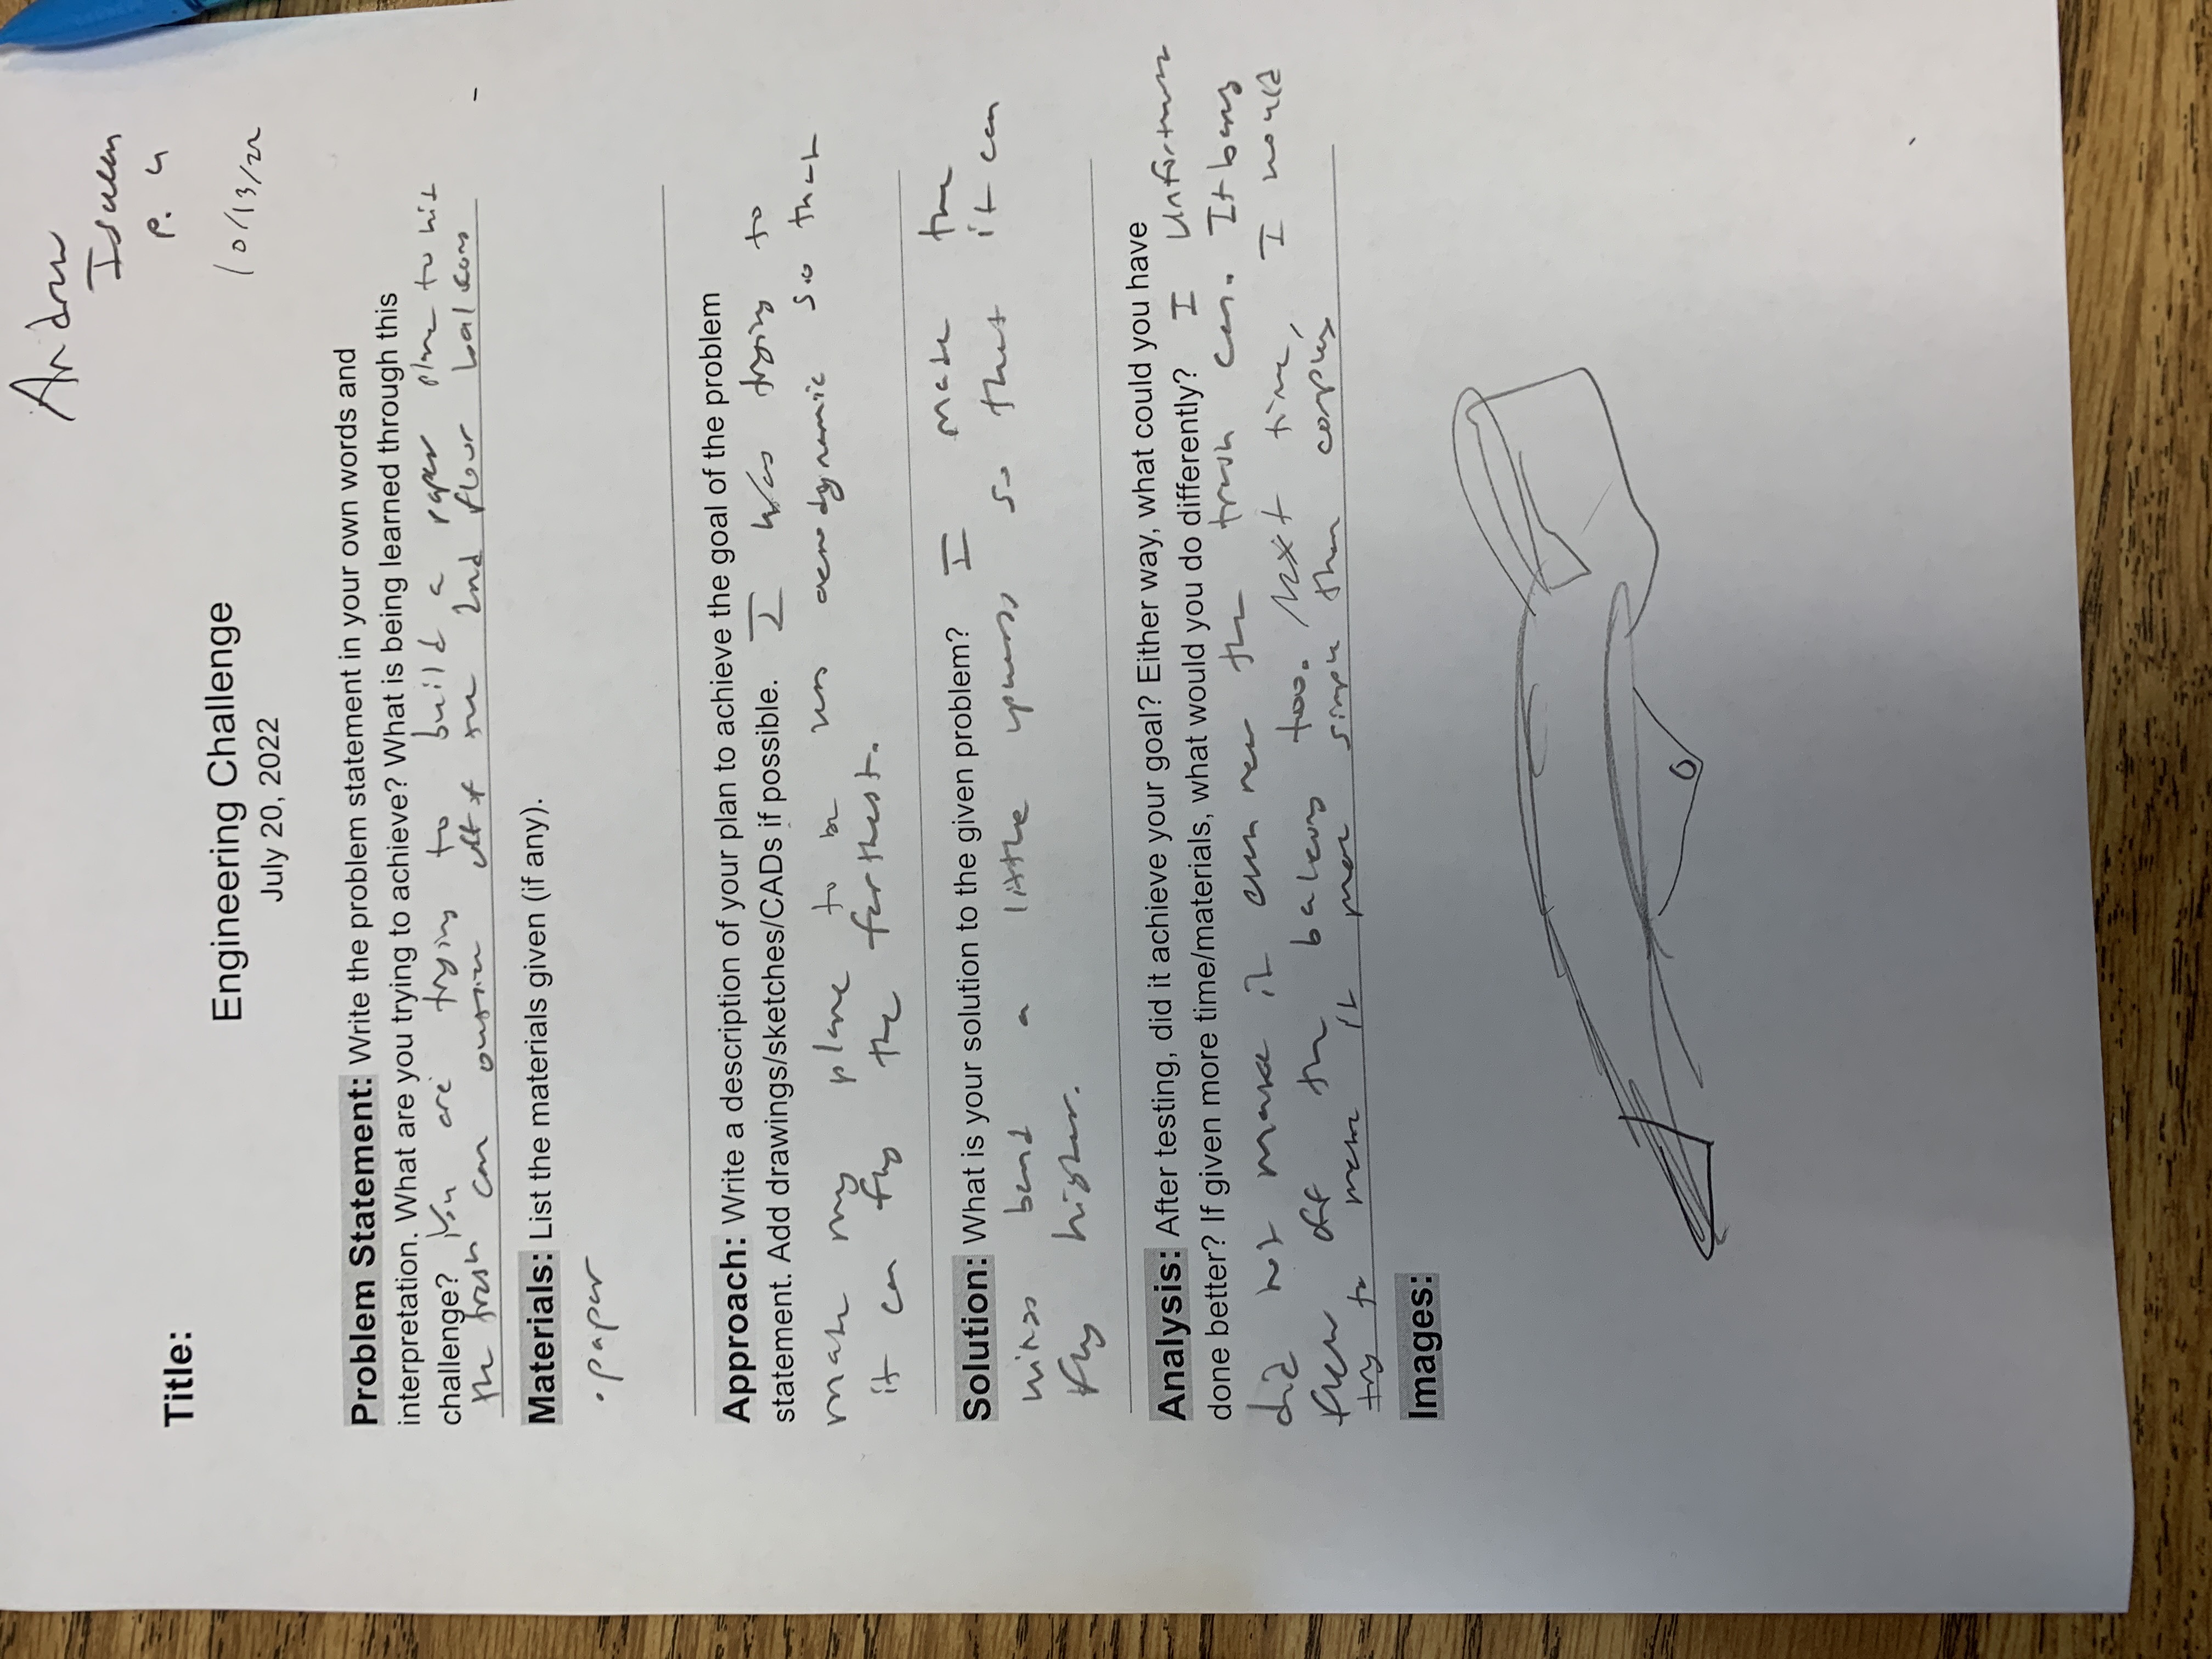 Andrew
P. 4
Title:
10/13/22
Engineering Challenge
July 20, 2022
Problem Statement: Write the problem statement in your own words and
interpretation. What are you trying to achieve? What is being learned through this
challenge? You are trying to build a paper plane to hit
the trash can outside off of the 2nd floor balcony
Materials: List the materials given (if any).
• paper
Approach: Write a description of your plan to achieve the goal of the problem
statement. Add drawings/sketches/CADs if possible. I was trying to
make my plane to be aerodynamic so that
it can fly the farthest.
Solution: What is your solution to the given problem? I made the
wings bend a little upwards so that it can
fly higher.
Analysis: After testing, did it achieve your goal? Either way, what could you have
done better? If given more time/materials, what would you do differently? I
did not make it even near the trash can. It
flew off the balcony too. Next time, I would
try to make it more simple than complex
Images: